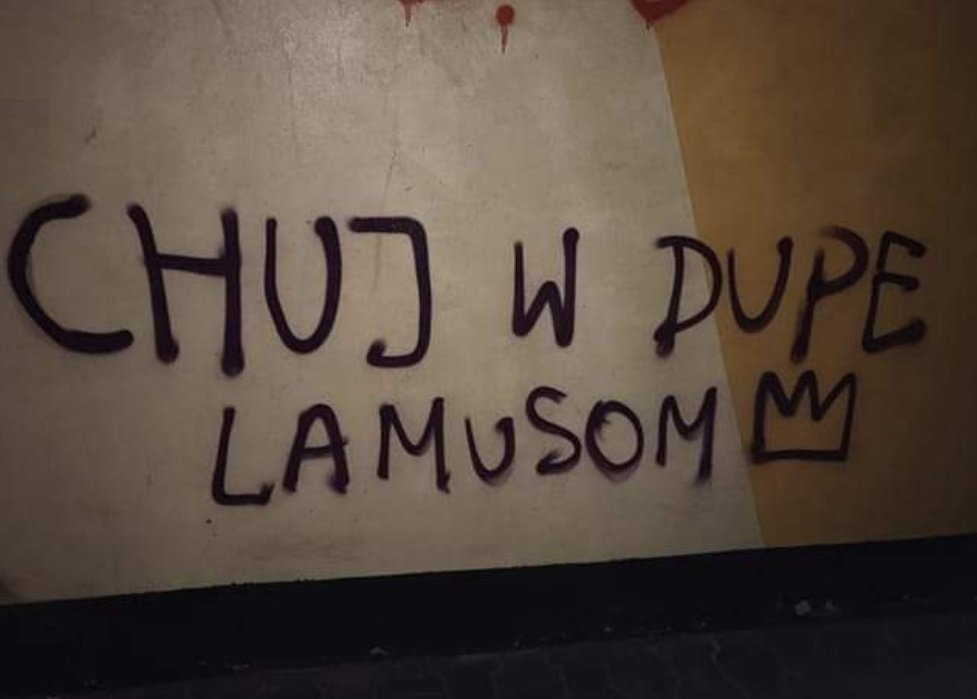 CHUJ W DUPE
LAMUSOM